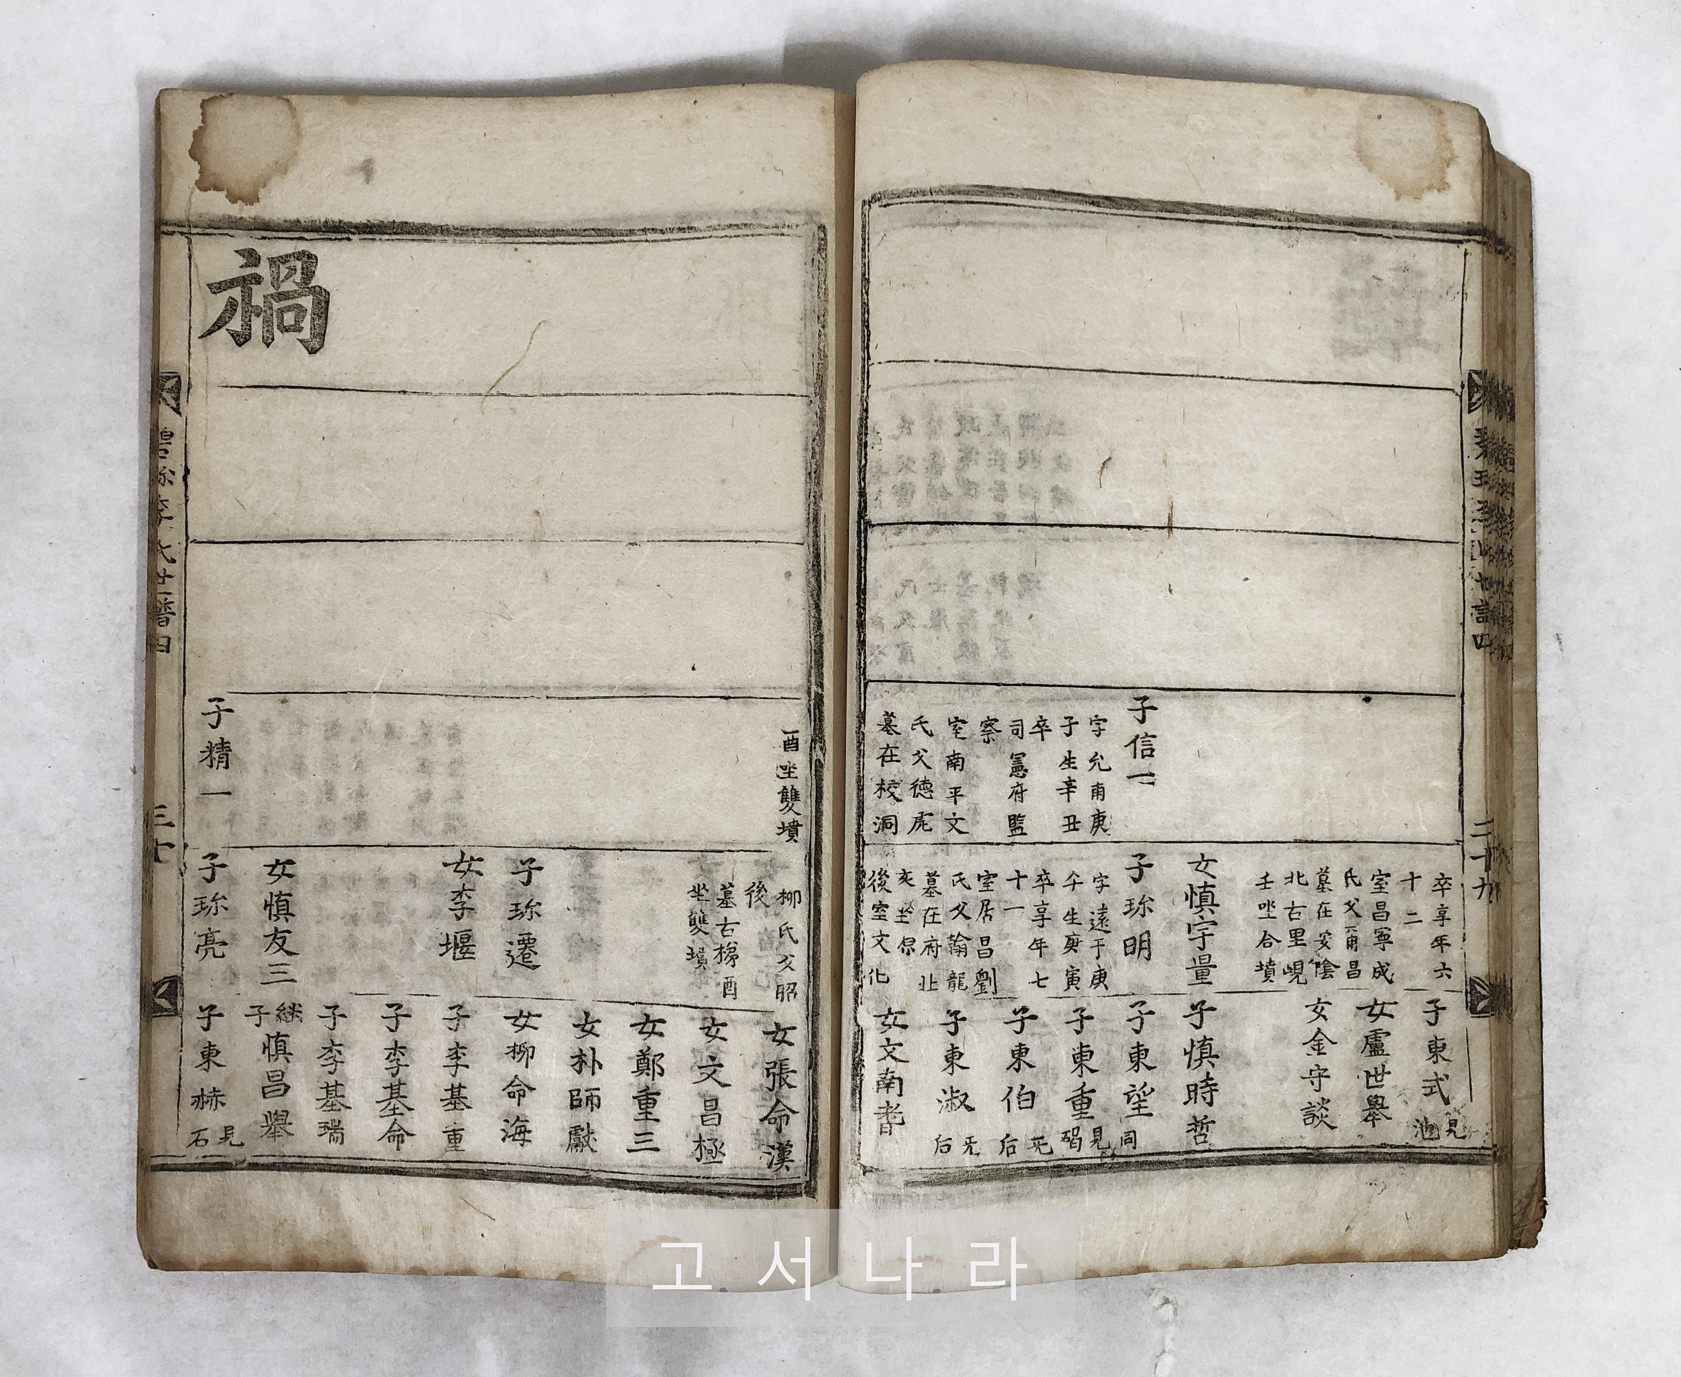 子信一
字允甫庚
子生辛丑
卒
司憲府監
察
室南平文
氏父德虎
墓在校洞
卒享年六
十二
室昌寧成
氏父甯昌
墓在安陰
北古里峴
壬坐合墳
女愼宇量
子珎明
字遠于庚
午生庚寅
卒享年七
十一
室居昌劉
氏父翰龍
墓在府北
亥坐原
後室文化
子東式
見池
女盧世擧
女金守談
子愼時哲
子東望
同
子東重
見碣
子東伯
无后
子東淑
无后
女文南耆
二十九
酉坐雙墳
柳氏父昭
後
墓古梯酉
坐雙墳
女張命漢
女文昌極
女鄭重三
女朴師獻
子珎遷
女柳命海
女李堰
子李基重
子李基命
子李基瑞
女愼友三
繼子愼昌擧
禍
子精一
子珎亮
子東赫
見石
碧珎李氏世譜四
三十
고서나라